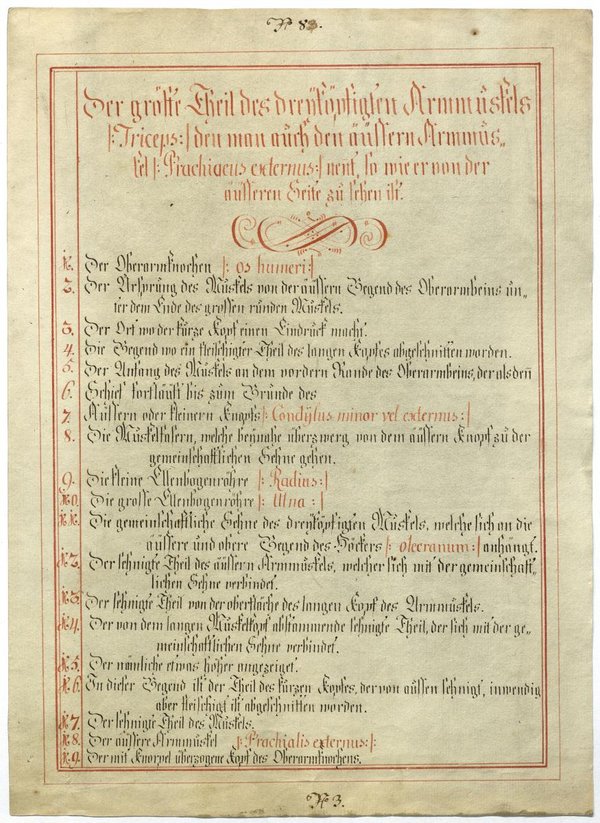 N 83.
Der größte Theil des dreyköpfigten Armmuskels
|: Triceps :| den man auch den äussern Armmus„
kel |: Brachiaeus externus :| nent, so wie er von der
äusseren Seite zu sehen ist.
1. Der Oberarmknochen |: os humeri :|
2. Der Ursprung des Muskels von der äussern Gegend des Oberarmbeins un„
ter dem Ende des grossen runden Muskels.
3. Der Ort wo der kurze Kopf einen Eindruck macht.
4. Die Gegend wo ein fleischigter Theil des langen Kopfes abgeschnitten worden.
5. Der Anfang des Muskels an dem vordern Rande des Oberarmbeins, der als den
6. Schief fortläuft bis zum Grunde des
7. Äussern oder kleinern Knopfs |: Condylus minor vel externus :|
8. Die Muskelfasern, welche beynahe überzwerg von dem äussern Knopf zu der
gemeinschaftlichen Sehne gehen.
9. Die kleine Ellenbogenröhre |: Radius :|
10. Die grosse Ellenbogenröhre |: Ulna :|
11. Die gemeinschaftliche Sehne des dreyköpfigten Muskels, welche sich an die
äussere und obere Gegend des Höckers |: olecranum :| anhängt.
12. Der sehnigte Theil des äussern Armmuskels, welcher sich mit der gemeinschaft„
lichen Sehne verbindet.
13. Der sehnigte Theil von der oberfläche des langen Kopf des Armmuskels.
14. Der von dem langen Muskelkopf abstammende sehnigte Theil, der sich mit der ge„
meinschaftlichen Sehne verbindet.
15. Der nämliche etwas höher angezeiget.
16. In dieser Gegend ist der Theil des kurzen Kopfes, der von aussen sehnigt, inwendig
aber fleischigt ist abgeschnitten worden.
17. Der sehnigte Theil des Muskels.
18. Der äussere Armmuskel |: Brachialis externus :|:
19. Der mit Knorpel überzogene Kopf des Oberarmknochens.
N 3.